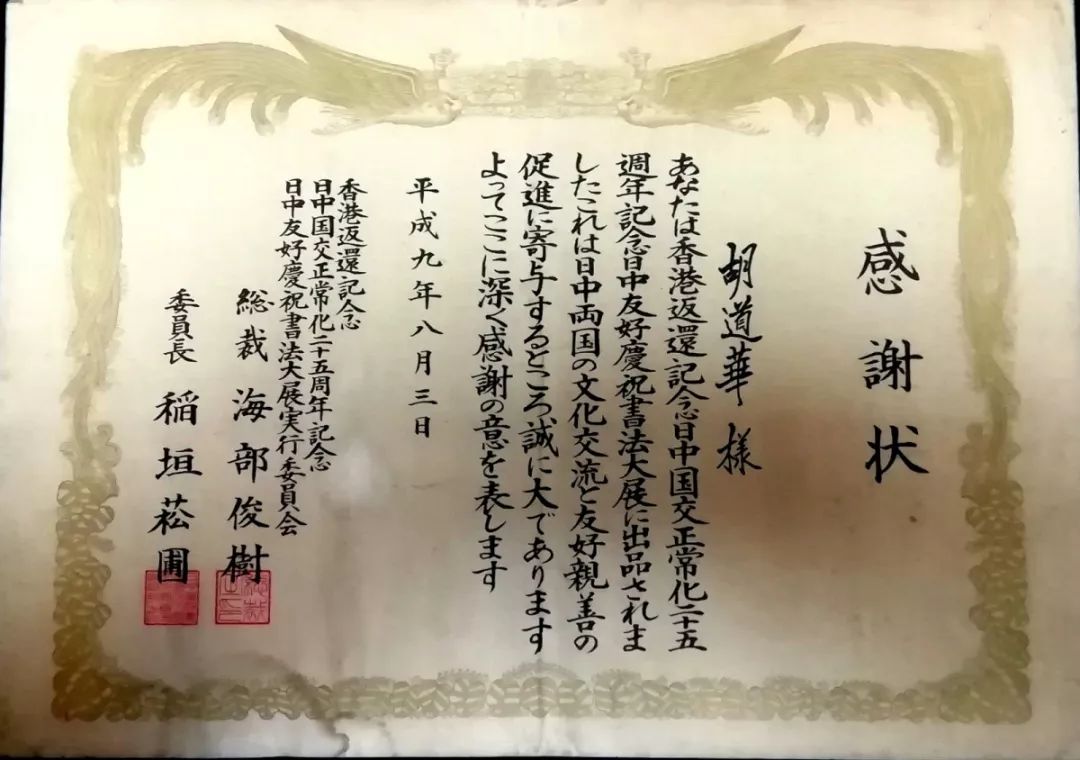 感謝状
胡道華 様
あなたは香港返還記念日中国交正常化二十五
週年記念日中友好慶祝書法大展に出品されま
したこれは日中両国の文化交流と友好親善の
促進に寄与するところ誠に大であります
よってここに深く感謝の意を表します
平成九年八月三日
香港返還記念
日中国交正常化二十五周年記念
日中友好慶祝書法大展実行委員会
総裁 海部俊樹
委員長 稲垣菘圃